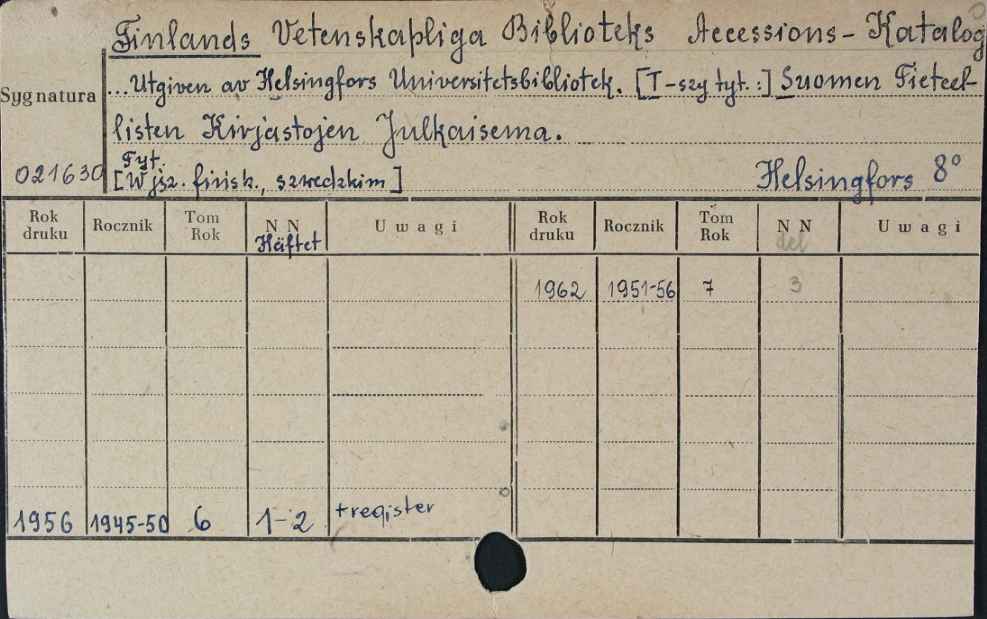 Finlands Vetenskapliga Biblioteks Accessions-Katalog
...Utgiven av Helsingfors Universitetsbibliotek. [T-szy tyt.:] Suomen Tieteel-
Sygnatura
listen Kirjastojen Julkaisema.
021630 Tyt.
[W jęz. fińsk., szwedzkim] Helsingfors 8°
Rok druku Rocznik Tom Rok N N Häftet Uwagi Rok druku Rocznik Tom Rok N N del Uwagi
1962 1951-56 7 3
1956 1945-50 6 1-2 +register